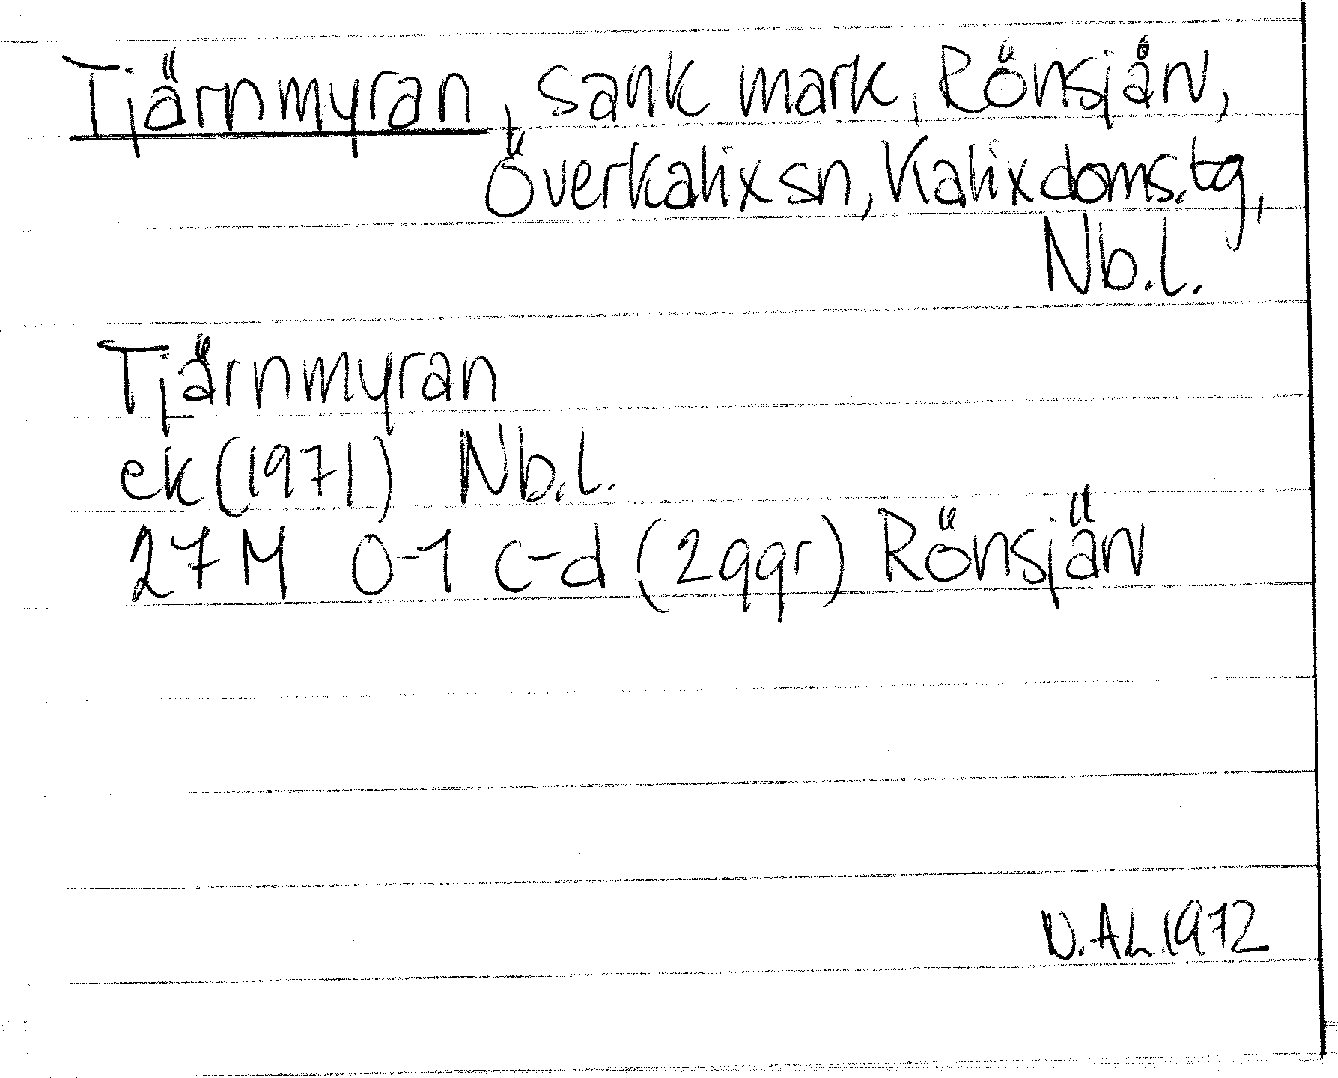 Tjärnmyran, sank mark, Rönsjärv,
Överkalix sn, Kalix doms.tg,
Nb.l.
Tjärnmyran
ek (1971) Nb.l.
27M 0-1 c-d (2ggr) Rönsjärv
N.AL 1972